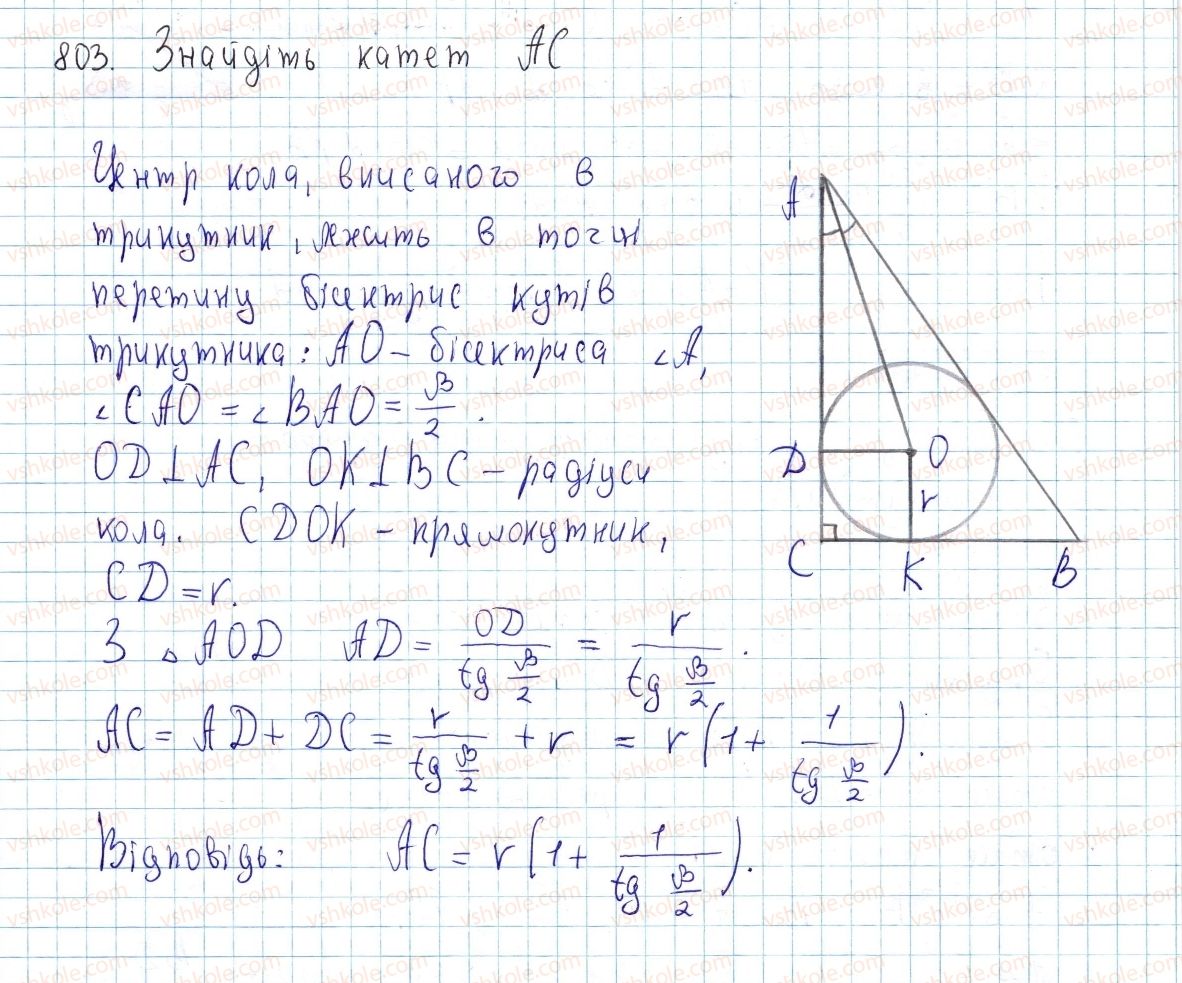 803. Знайдіть катет AC
Центр кола, вписаного в
трикутник, лежить в точці
перетину бісектрис кутів
трикутника: AO – бісектриса ∠A,
∠CAO = ∠BAO = β/2.
OD⊥AC, OK⊥BC – радіуси
кола. CDOK – прямокутник,
CD = r.
З △AOD AD = OD/(tg β/2) = r/(tg β/2).
AC = AD + DC = r/(tg β/2) + r = r(1 + 1/(tg β/2)).
Відповідь: AC = r(1 + 1/(tg β/2)).
A
D
O
r
C
K
B
vshkole.com